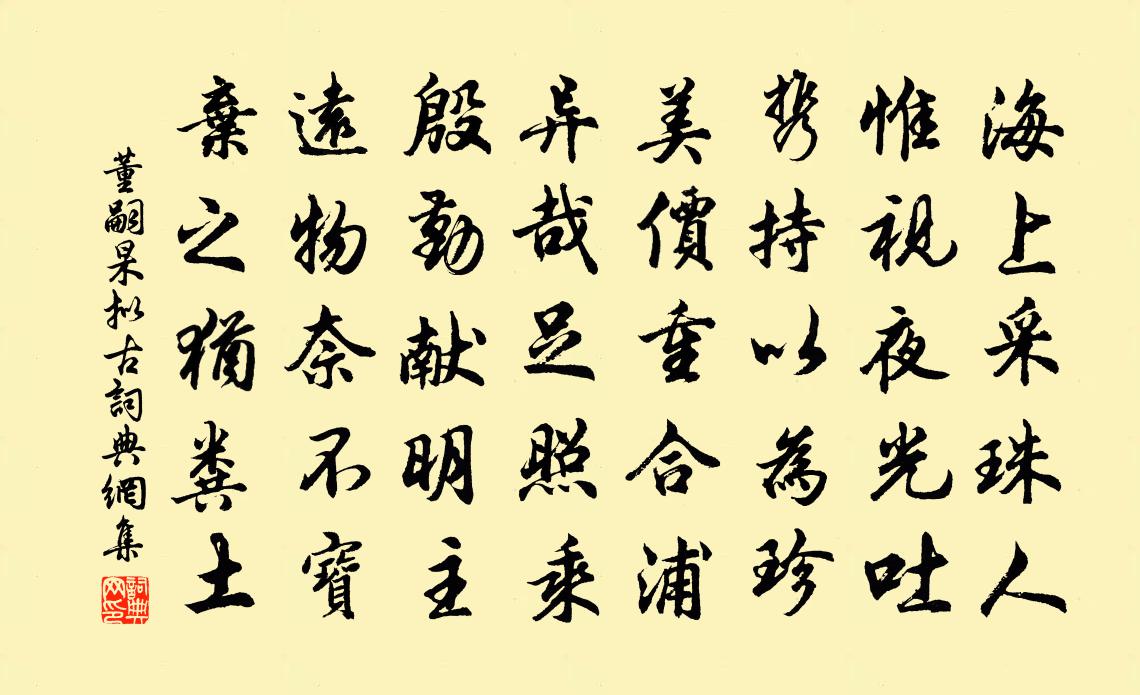 海上采珠人
惟視夜光吐
携持以為珍
美價重合浦
异哉足照乘
殷勤献明主
遠物奈不寶
棄之猶糞土
董嗣杲拟古詞典網集
詞典網印